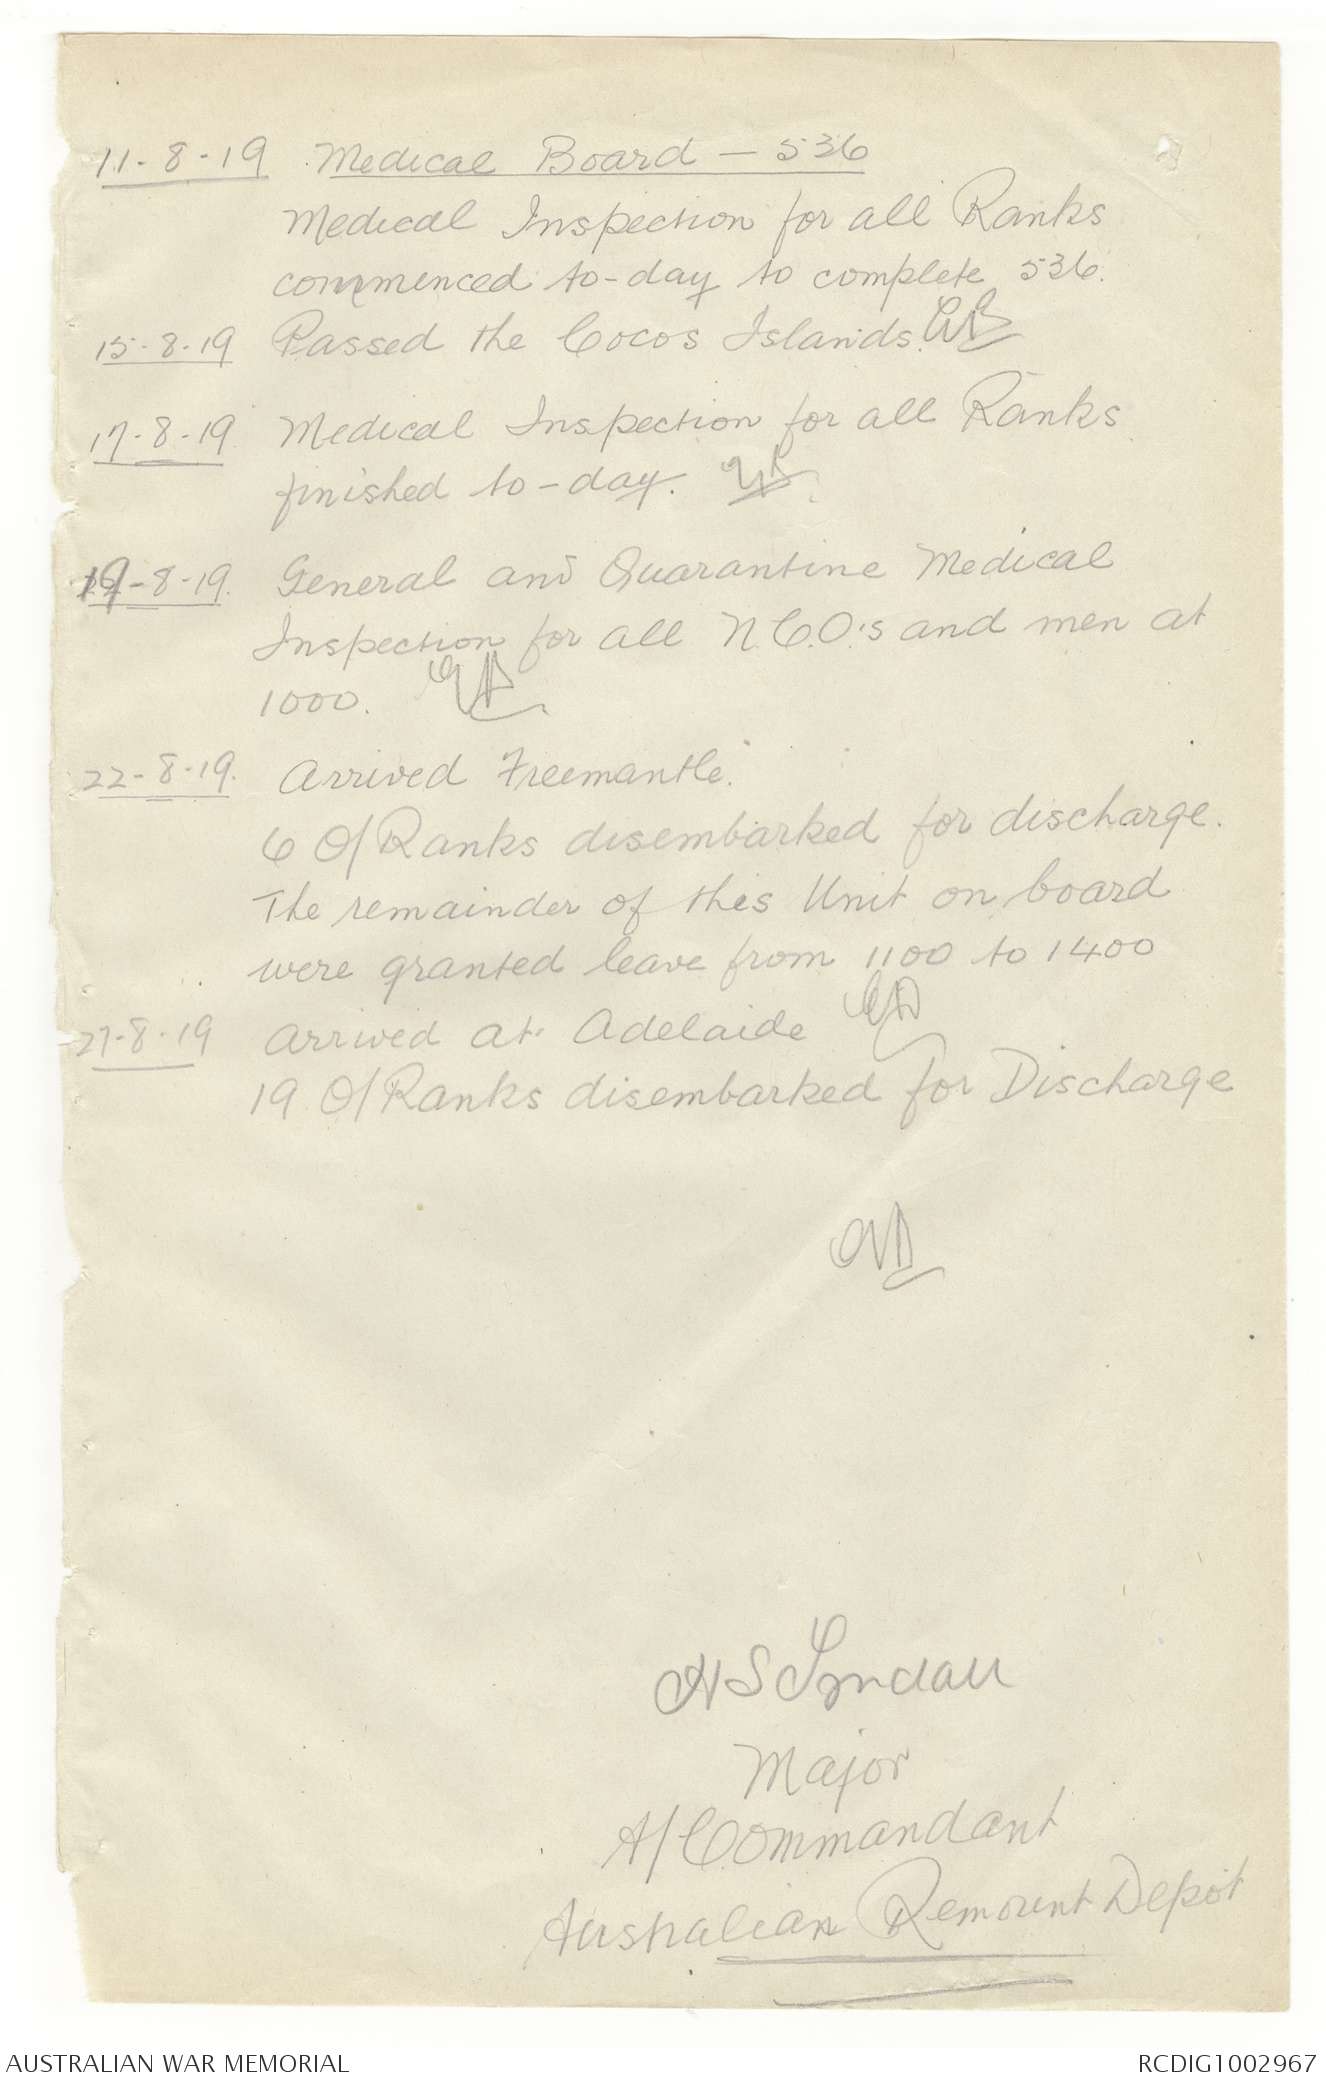 11-8-19 Medical Board - 536
Medical Inspection for all Ranks
commenced to-day to complete 536.
15-8-19 Passed the Cocos Islands.
17-8-19 Medical Inspection for all Ranks
finished to-day.
19-8-19. General and Quarantine Medical
Inspection for all N.C.O.'s and men at
1000.
22-8-19. Arrived Freemantle.
6 O/Ranks disembarked for discharge.
The remainder of this Unit on board
were granted leave from 1100 to 1400
27-8-19 Arrived at Adelaide
19 O/Ranks disembarked for Discharge
Major
A/Commandant
Australian Remount Depot
AUSTRALIAN WAR MEMORIAL RCDIG1002967